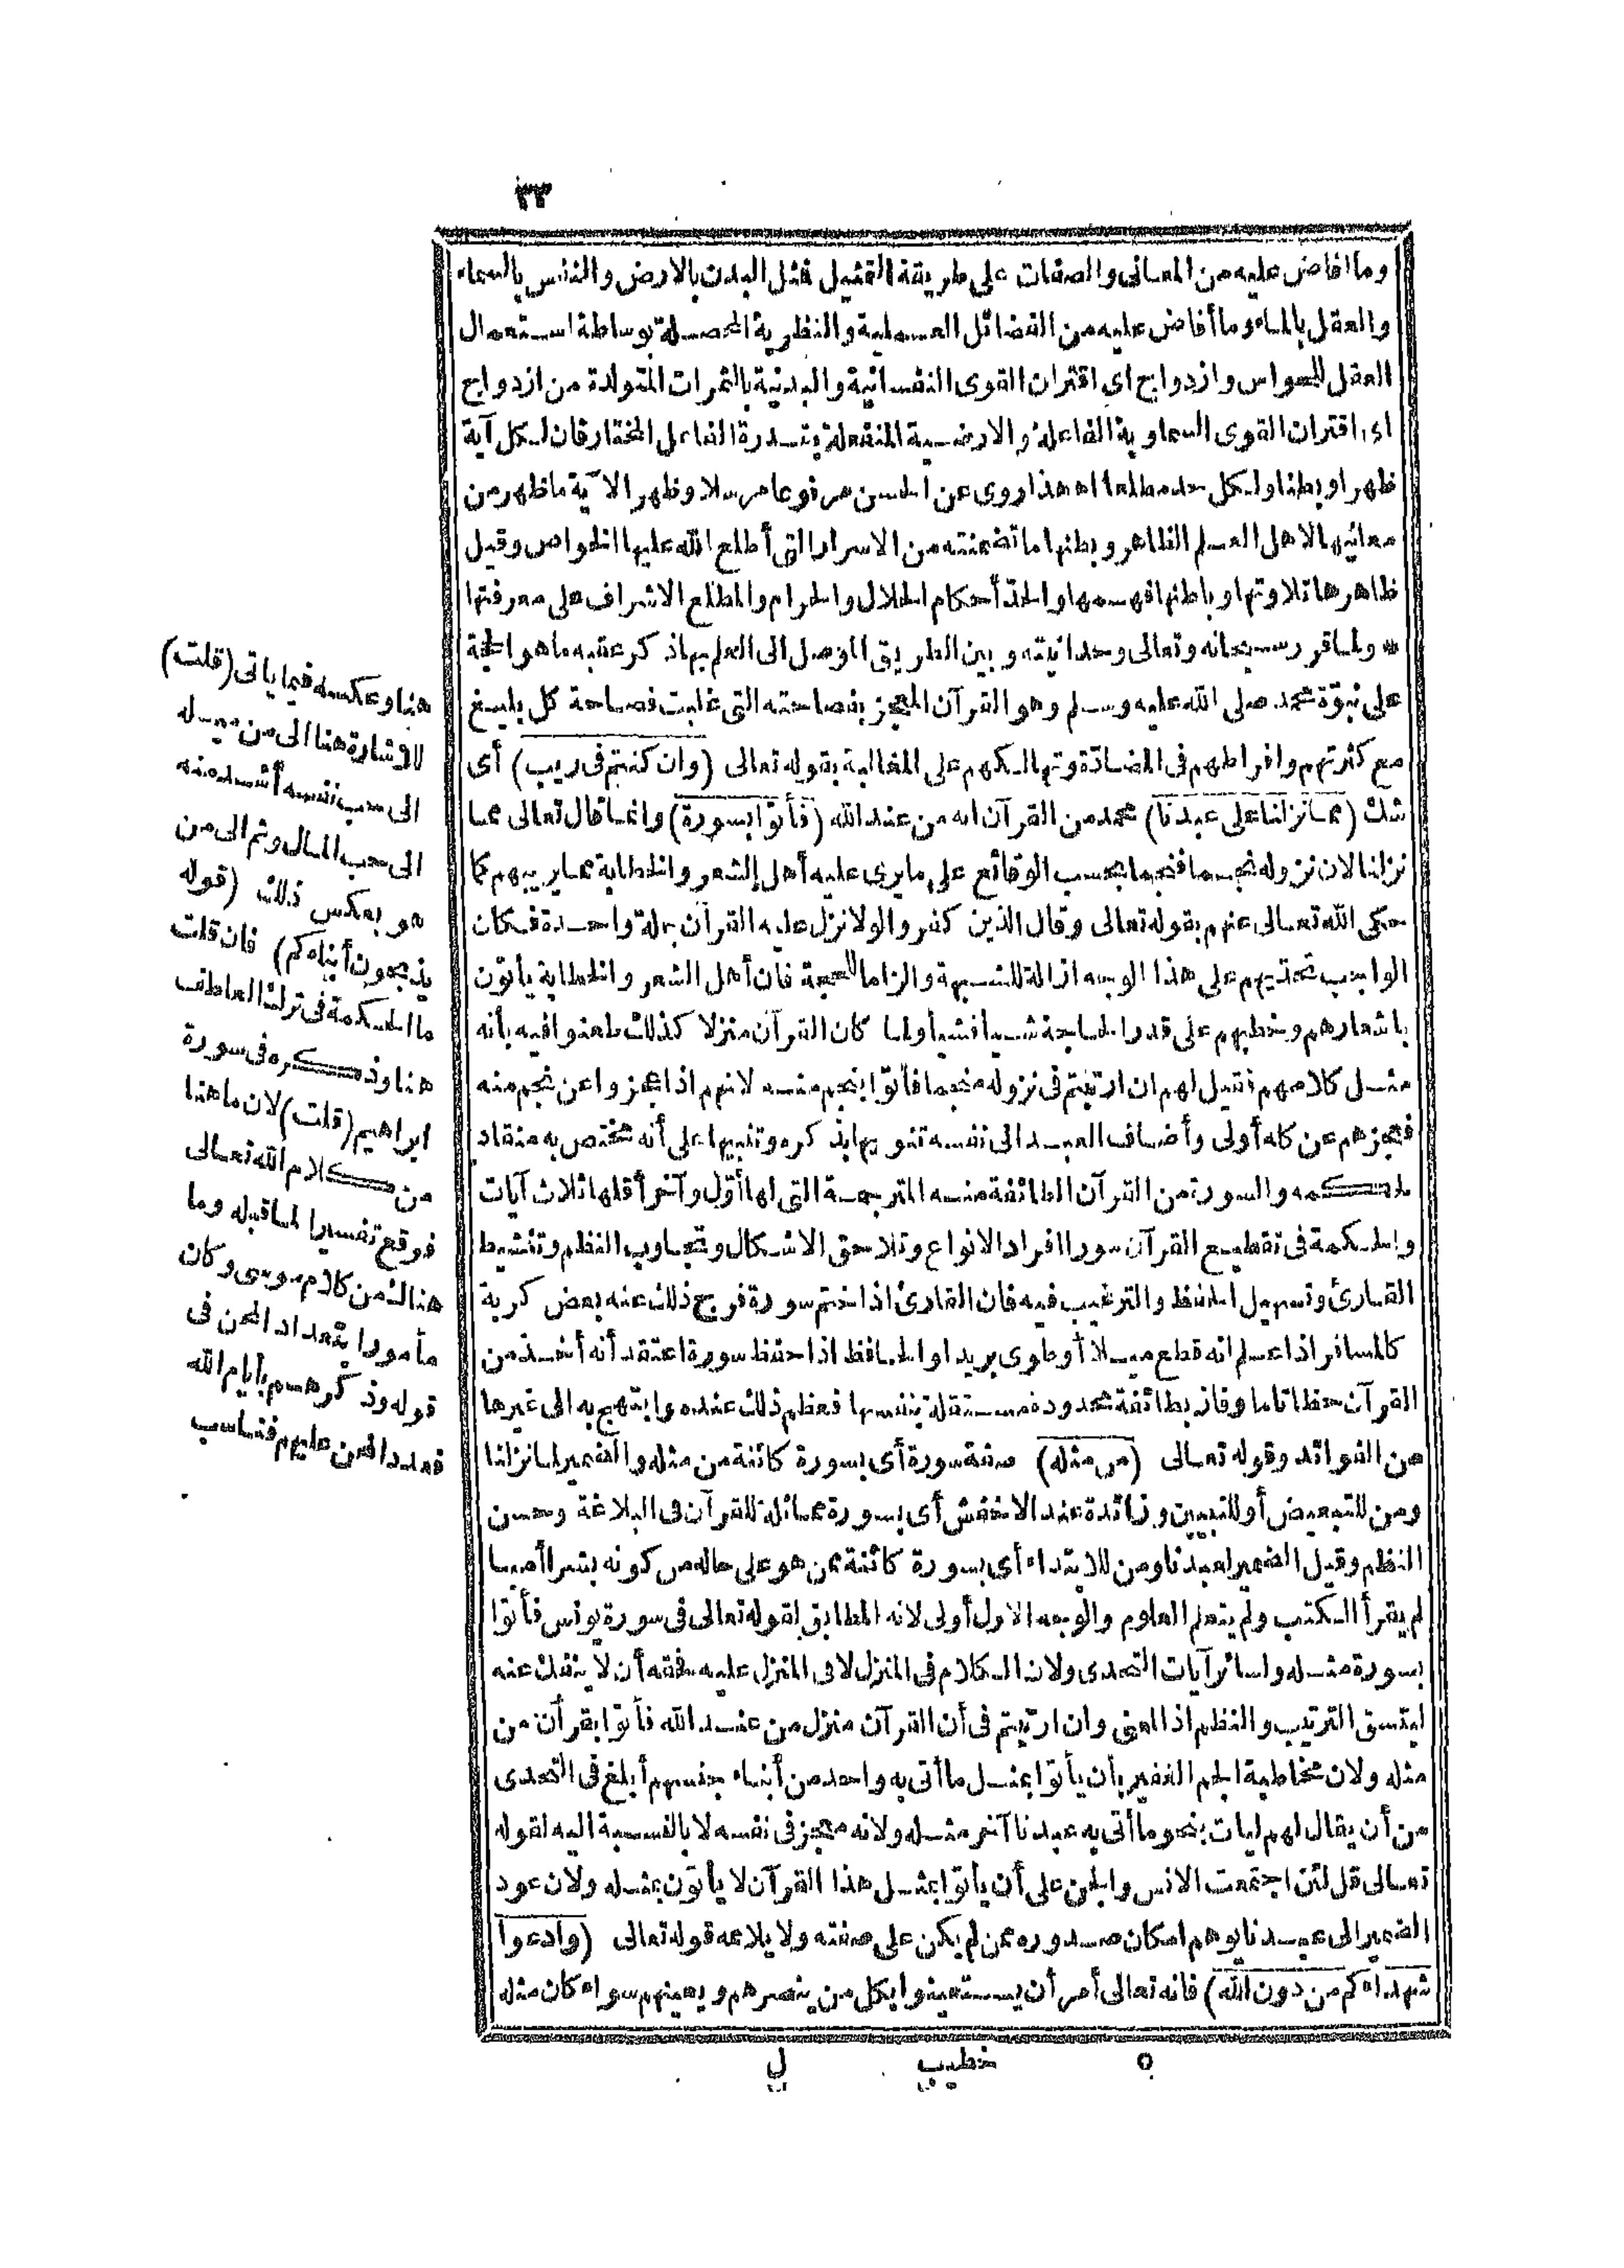 ٣٣
وما افاض عليه من المعانى والصفات على طريقة التمثيل فثل البدن بالارض والنفس بالسماء
والعقل بالماء وما أفاض عليه من الفضائل العملية والنظرية المحصلة بوساطة استعمال
العقل للحواس وازدواج اى اقتران القوى النفسانية والبدنية بالثمرات المتولدة من ازدواج
اى اقتران القوى السماوية الفاعلة والارضية المنفعلة بقدرة الفاعل المختار فان لكل آية
ظهرا وبطنا ولكل حد مطلعا اه هذا روى عن الحسن مرفوعا مرسلا وظهر الآية ما ظهر من
معانيها لاهل العلم الظاهر وبطنها ما تضمنته من الاسرار التى أطلع الله عليها الخواص وقيل
ظاهرها تلاوتها وباطنها فهمها والحدّ أحكام الحلال والحرام والمطلع الاشراف على معرفتها
* ولما قرر سبحانه وتعالى وحدانيته وبين الطريق الموصل الى العلم بها ذكر عقبه ما هو الحجة
على نبوّة محمد صلى الله عليه وسلم وهو القرآن المعجز بفصاحته التى غلبت فصاحة كل بليغ
مع كثرتهم وافراطهم فى المضادّة وتهالكهم على المغالبة بقوله تعالى (وان كنتم فى ريب) أى
شك (مما نزلنا على عبدنا) محمد من القرآن انه من عند الله (فأتوا بسورة) وانما قال تعالى مما
نزلنا لان نزوله نجما فنجما بحسب الوقائع على ما يرى عليه أهل الشعر والخطابة مما يريبهم كما
حكى الله تعالى عنهم بقوله تعالى وقال الذين كفروا لولا نزل عليه القرآن جملة واحدة فكان
الواجب تحديهم على هذا الوجه ازالة للشبهة والزاما للحجة فان أهل الشعر والخطابة يأتون
باشعارهم وخطبهم على قدر الحاجة شيأ فشيأ ولما كان القرآن منزلا كذلك طعنوا فيه بأنه
مثل كلامهم فقيل لهم ان ارتبتم فى نزوله منجما فأتوا بنجم منه لانهم اذا عجزوا عن نجم منه
فعجزهم عن كله أولى وأضاف العبد الى نفسه تنويها بذكره وتنبيها على أنه مختص به منقاد
لحكمه والسورة من القرآن الطائفة منه المترجمة التى لها أوّل وآخر أقلها ثلاث آيات
والحكمة فى تقطيع القرآن سورا افراد الانواع وتلاحق الاشكال وتجاوب النظم وتنشيط
القارئ وتسهيل الحفظ والترغيب فيه فان القارئ اذا ختم سورة فرج ذلك عنه بعض كربة
كالمسافر اذا علم انه قطع ميلا أو طوى بريدا والحافظ اذا حفظ سورة اعتقد أنه أخذ من
القرآن حفظا تاما وفاز بطائفة محدودة مستقلة بنفسها فعظم ذلك عنده وابتهج به الى غيرها
من الفوائد وقوله تعالى (من مثله) صفة سورة أى بسورة كائنة من مثله والضمير لما نزلنا
ومن للتبعيض أو للتبيين وزائدة عند الاخفش أى بسورة مماثلة للقرآن فى البلاغة وحسن
النظم وقيل الضمير لعبدنا ومن للابتداء أى بسورة كائنة ممن هو على حاله من كونه بشرا أميا
لم يقرأ الكتب ولم يتعلم العلوم والوجه الاول أولى لانه المطابق لقوله تعالى فى سورة يونس فأتوا
بسورة مثله ولسائر آيات التحدى ولان الكلام فى المنزل لا فى المنزل عليه فحقه أن لا ينفك عنه
ليتسق الترتيب والنظم اذ المعنى وان ارتبتم فى أن القرآن منزل من عند الله فأتوا بقرآن من
مثله ولان مخاطبة الجم الغفير بأن يأتوا بمثل ما أتى به واحد من أبناء جنسهم أبلغ فى التحدى
من أن يقال لهم ليات بنحو ما أتى به عبدنا آخر مثله ولانه معجز فى نفسه لا بالنسبة اليه لقوله
تعالى قل لئن اجتمعت الانس والجن على أن يأتوا بمثل هذا القرآن لا يأتون بمثله ولان عود
الضمير الى عبدنا يوهم امكان صدوره ممن لم يكن على صفته ولا يلائمه قوله تعالى (وادعوا
شهداءكم من دون الله) فانه تعالى أمر أن يستعينوا بكل من ينصرهم ويعينهم سواء كان مثله
هنا وعكسه فيما يأتى (قلت)
للاشارة هنا الى من ميله
الى حب نفسه أشد منه
الى حب المال وثم الى من
هو بعكس ذلك (قوله
يذبحون أبناءكم) فان قلت
ما الحكمة فى ترك العاطف
هنا وذكره فى سورة
ابراهيم (قلت) لان ما هنا
من كلام الله تعالى
فوقع تفسيرا لما قبله وما
هنالك من كلام موسى وكان
مأمورا بتعداد المحن فى
قوله وذكرهم بأيام الله
فعدد المحن عليهم فناسب
٥ خطيب ل